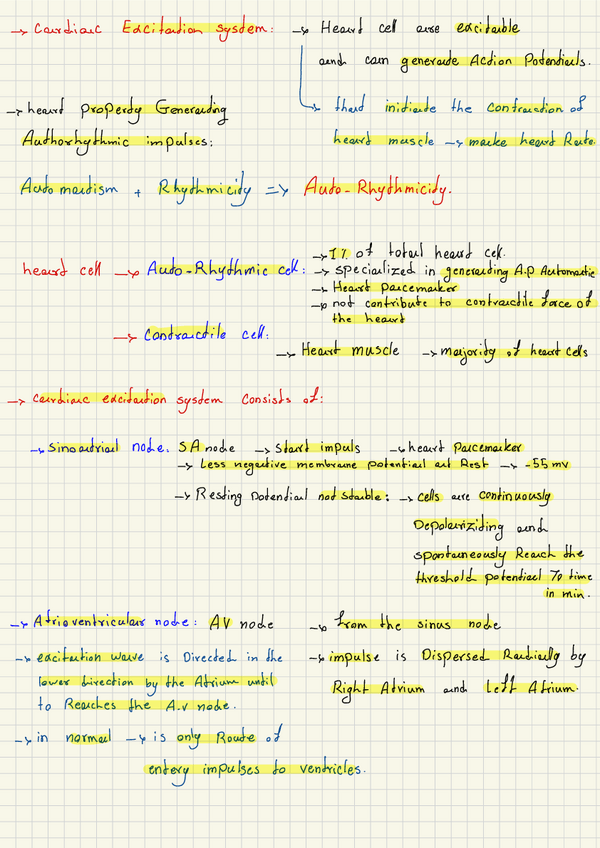 → Cardiac Excitation system: → Heart cell are excitable
and can generate Action Potentials.
→ that initiate the contraction of
heart muscle → make heart Rate.
→ heart property Generating
Authorhythmic impulses:
Automatism + Rhythmicity => Auto-Rhythmicity.
heart cell → Auto-Rhythmic cell: → 1% of total heart cell.
→ specialized in generating A.p Automatic
→ Heart pacemaker
→ not contribute to contractile force of
the heart
→ Contractile cell:
→ Heart muscle → majority of heart cells
→ cardiac excitation system consists of:
→ sinoatrial node. SA node → start impuls → heart pacemaker
→ Less negative membrane potential at Rest → -55 mv
→ Resting potential not stable: → cells are continuously
Depolarizating and
spontaneously Reach the
threshold potential 70 time
in min.
→ Atrioventricular node: AV node → from the sinus node
→ excitation wave is Directed in the
lower direction by the Atrium until
to Reaches the A.v node.
→ impulse is Dispersed Radially by
Right Atrium and left Atrium.
→ in normal → is only Route of
entery impulses to ventricles.